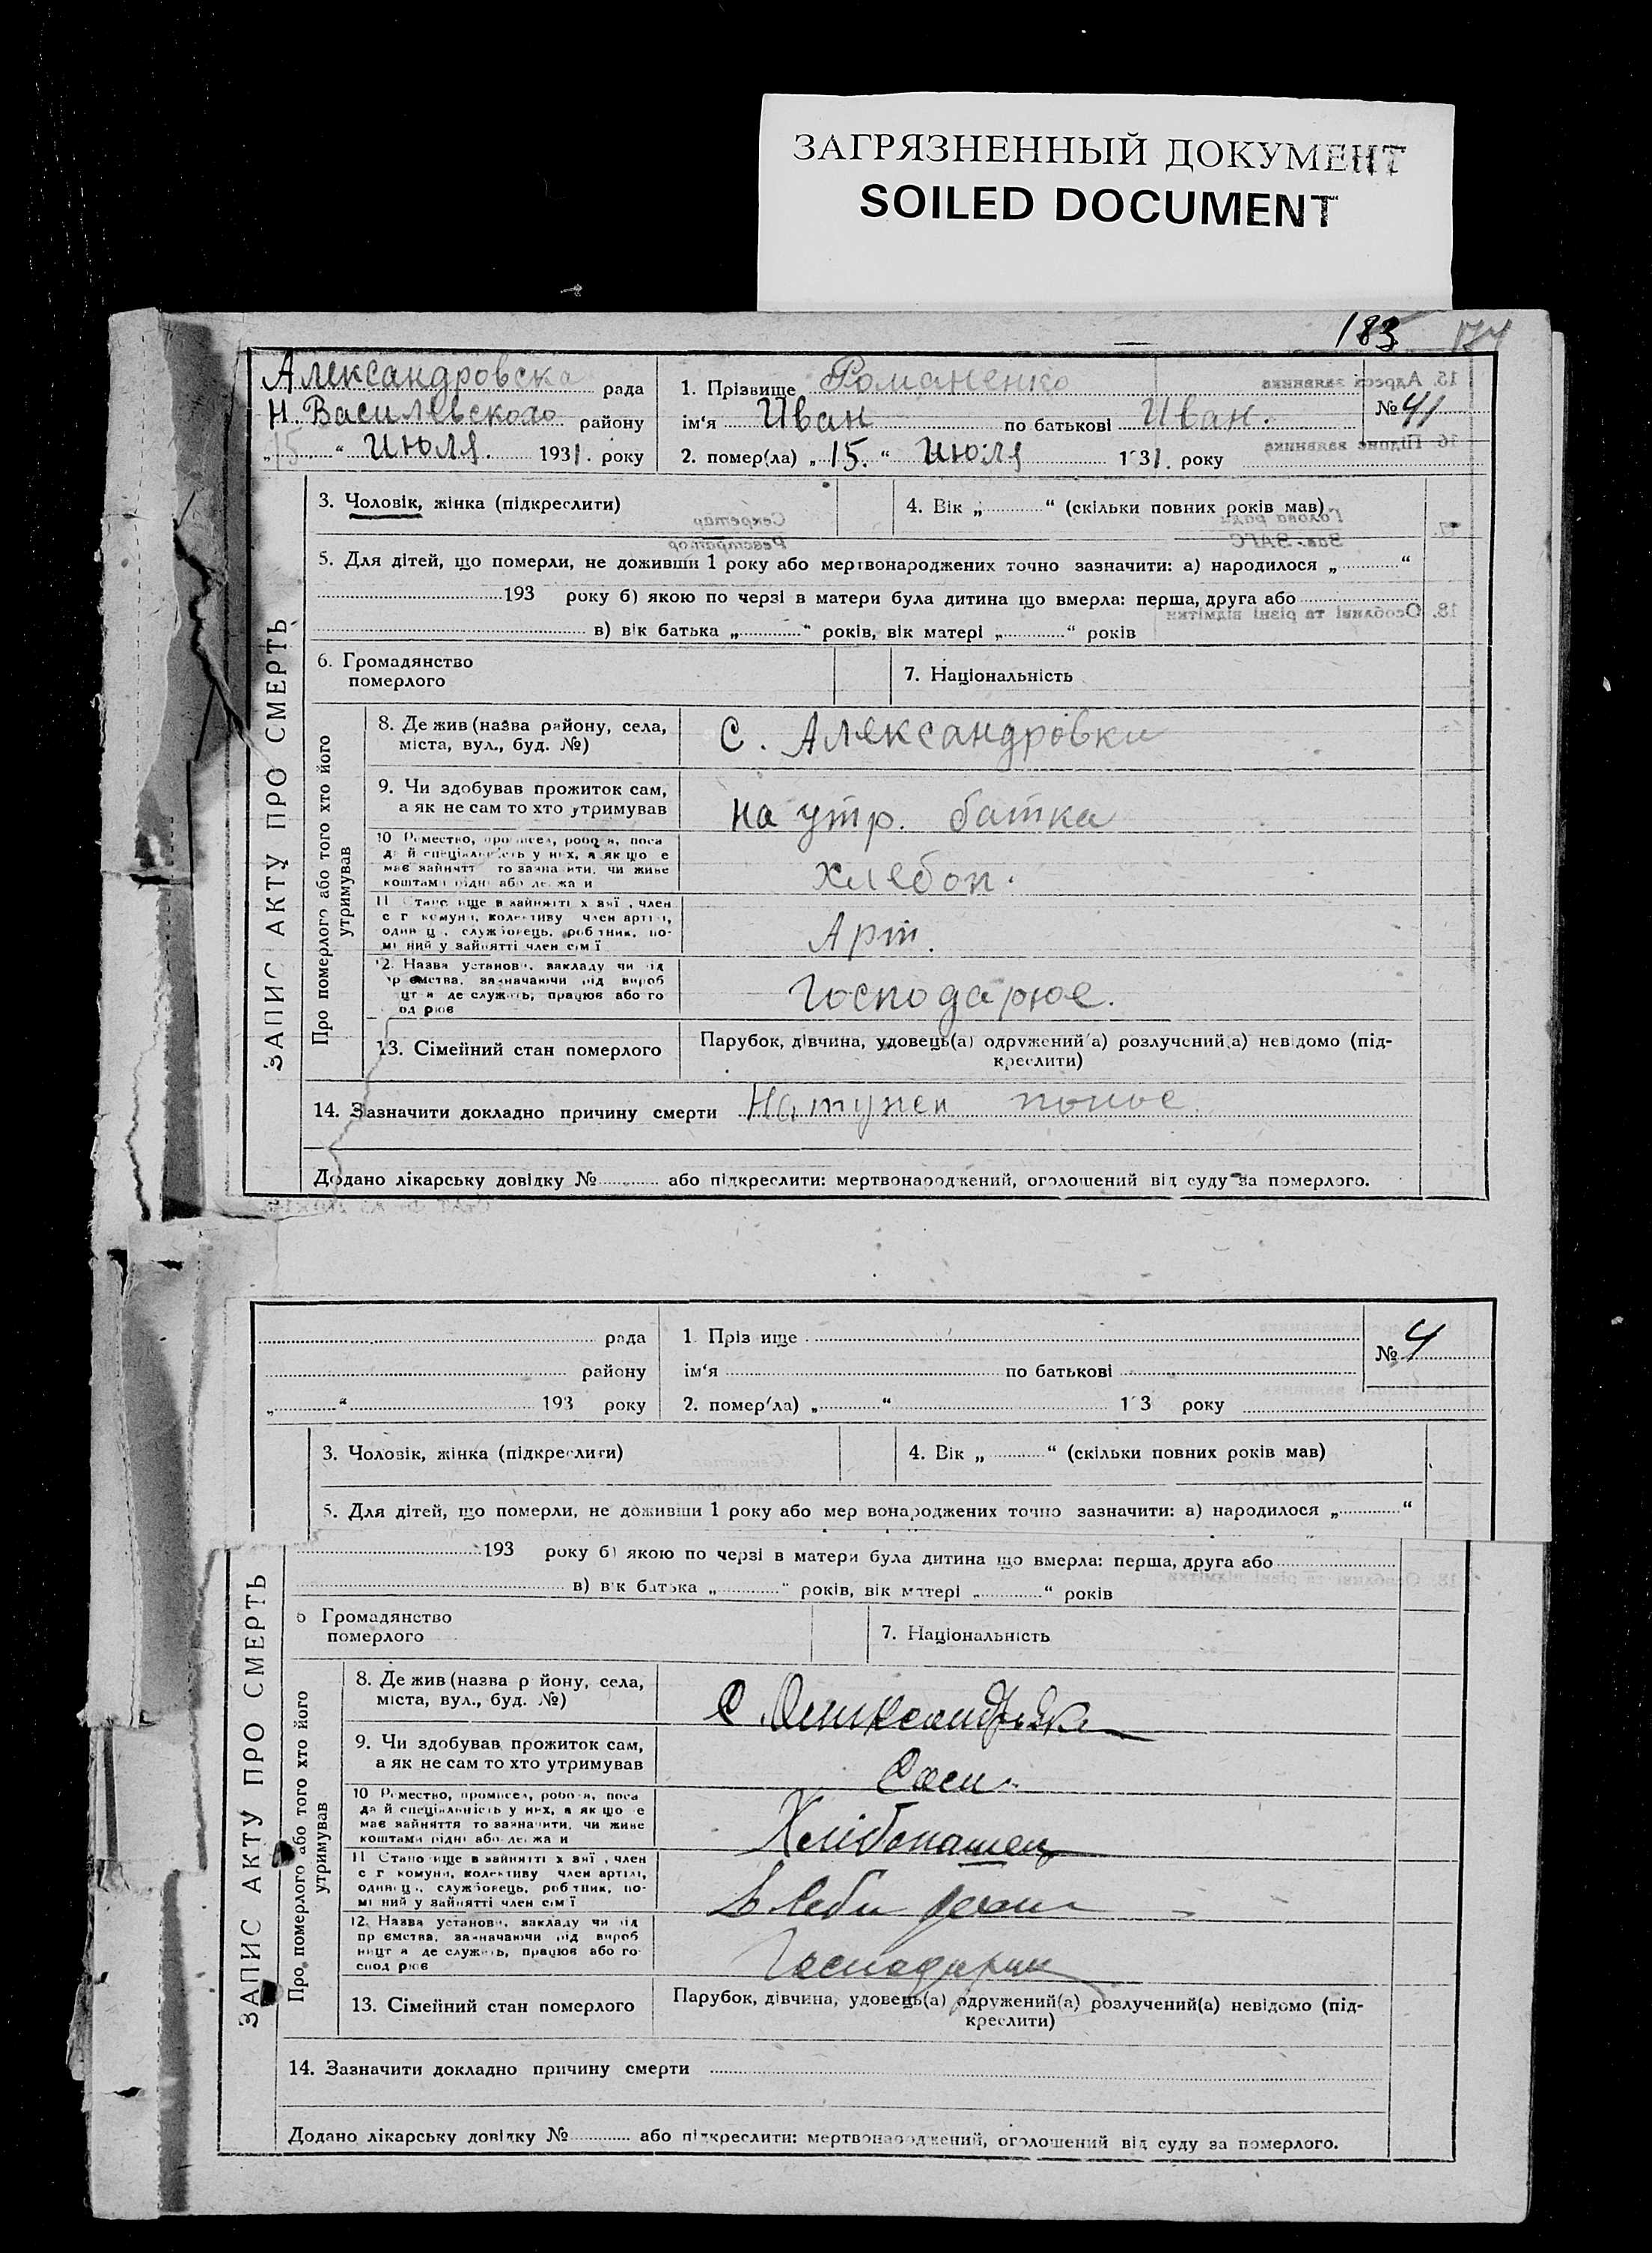 ЗАГРЯЗНЕННЫЙ ДОКУМЕНТ
SOILED DOCUMENT
183 174
Александровска рада
Н. Василевского району
„15“ Июля. 1931. року
1. Прізвище Романенко
ім‘я Иван по батькові Иван.
№ 41
2. помер(ла) „15.“ Июля 1 31. року
ЗАПИС АКТУ ПРО СМЕРТЬ
3. Чоловік, жінка (підкреслити)
4. Вік „ “ (скільки повних років мав)
5. Для дітей, що померли, не доживши 1 року або мертвонароджених точно зазначити: а) народилося „ “
193 року б) якою по черзі в матери була дитина що вмерла: перша, друга або
в) вік батька „ “ років, вік матері „ “ років
6. Громадянство
померлого
7. Національність
Про померлого або того хто його
утримував
8. Де жив (назва району, села,
міста, вул., буд. №)
С. Александровки
9. Чи здобував прожиток сам,
а як не сам то хто утримував
на утр. батка
10 Ремество, промисел, робота, поса
да й спеціальність у них, а якщо е
має зайняття то зазначити, чи живе
коштами рідні або держави
хлебоп.
11 Становище в зайнятті хазяї , член
с г комуни, колективу член артілі,
одинець, службовець, робітник, по-
мічний у зайнятті член сім ї
Арт.
12. Назва установи, закладу чи під
приємства, зазначаючи від вироб
ництва де служить, працює або го
спод рює
Господарюе.
13. Сімейний стан померлого
Парубок, дівчина, удовець(а) одружений(а) розлучений(а) невідомо (під-
креслити)
14. Зазначити докладно причину смерти
Додано лікарську довідку № або підкреслити: мертвонароджений, оголошений від суду за померлого.
рада
району
„ “ 193 року
1. Пріз ище
ім‘я по батькові
№ 4
2. помер(ла) „ “ 1 3 року
ЗАПИС АКТУ ПРО СМЕРТЬ
3. Чоловік, жінка (підкреслити)
4. Вік „ “ (скільки повних років мав)
5. Для дітей, що померли, не доживши 1 року або мер вонароджених точно зазначити: а) народилося „ “
193 року б) якою по черзі в матери була дитина що вмерла: перша, друга або
в) вік батька „ “ років, вік матері „ “ років
6 Громадянство
померлого
7. Національність
Про померлого або того хто його
утримував
8. Де жив (назва р йону, села,
міста, вул., буд. №)
9. Чи здобував прожиток сам,
а як не сам то хто утримував
10 Ремество, промисел, робота, поса
да й спеціальність у них, а якщо е
має зайняття то зазначити, чи живе
коштами рідні або держави
Хлібопашец
11 Становище в зайнятті хазяї , член
с г комуни, колективу член артілі,
одинець, службовець, робітник, по-
мічний у зайнятті член сім ї
12. Назва установи, закладу чи під
пр ємства, зазначаючи від вироб
ництва де служить, працює або го-
спод рює
13. Сімейний стан померлого
Парубок, дівчина, удовець(а) одружений(а) розлучений(а) невідомо (під-
креслити)
14. Зазначити докладно причину смерти
Додано лікарську довідку № або підкреслити: мертвонароджений, оголошений від суду за померлого.